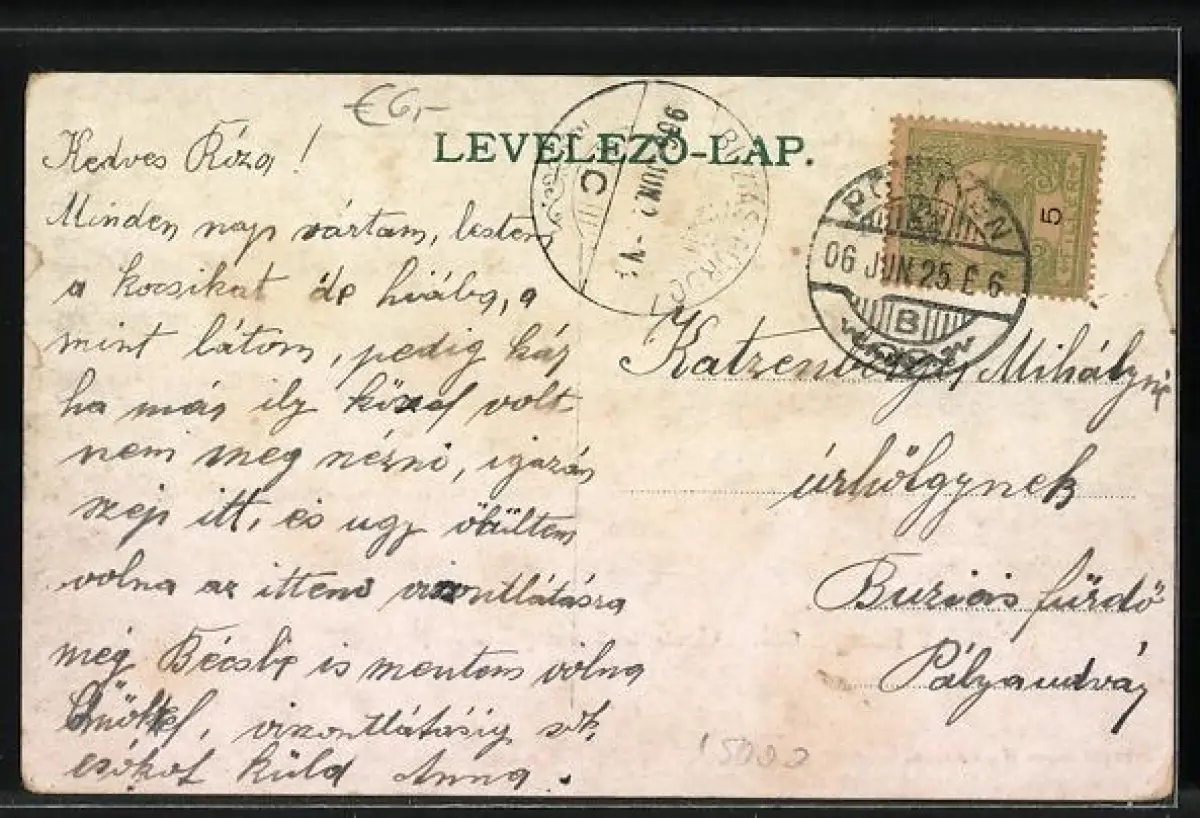 €6,-
LEVELEZŐ-LAP.
Kedves Róza!
Minden nap vártam, lestem
a kocsikat de hiába, a
mint látom, pedig kár
ha már ily közel volt
nem meg nézni, igazán
szép itt, és ugy örültem
volna az itteni viszontlátásra
még Bécsbe is mentem volna
viszontlátásig sok
csókot küld Anna.
PÖSTYÉN
06 JUN 25 E 6
B
C
5
FILLÉR
Katzenberger Mihályné
úrhölgynek
Buziás fürdő
Pályaudvar